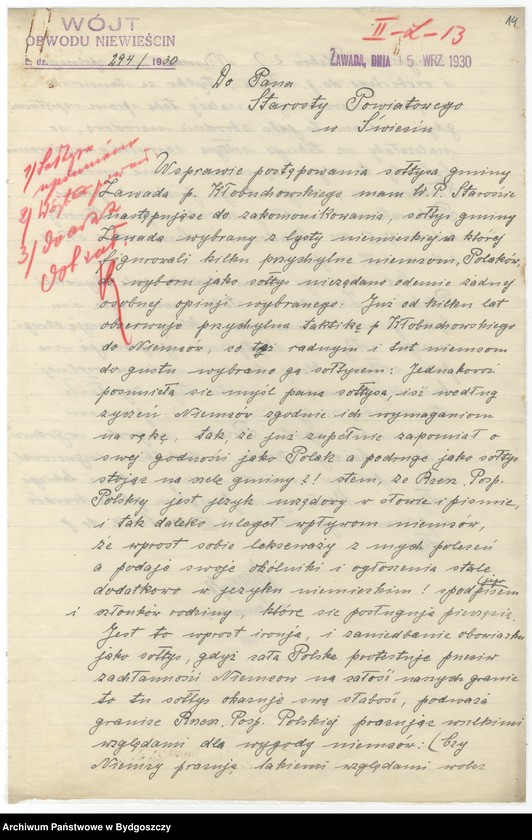 WÓJT
OBWODU NIEWIEŚCIN
L. dz. 294/1930
II-Z-13
14
ZAWADA, DNIA 5 WRZ. 1930
Do Pana
Starosty Powiatowego
w Świeciu
W sprawie postępowania sołtysa gminy
Zawada p. Kłobuchowskiego mam W. P. Staroście
następujące do zakomonikowania, sołtys gminy
Zawada wybrany z lysty niemieckiej na której
figurowali kilku przychylne niemcom, Polaków,
do wyboru jako sołtys nieżądano odemnie żadnej
osobnej opinji wybranego. Już od kilku lat
obserwuje przychylna taktikę p Kłobuchowskiego
do Niemców, co też radnym i tut niemcom
do gustu wybrano go sołtysem: Jednakowoż
posunęła sie myśl pana sołtysa, iść według
życzeń Niemców zgodnie ich wymaganiom
na rękę, tak, że już zupełnie zapomiał o
swej godności jako Polak a podrugę jako sołtys
stojąc na czele gminy z! tem, że Rzecz. Posp.
Polskiej jest język urzędowy w słowie i piśmie,
i tak daleko uległ wpływom niemców,
że wprost sobie lekceważy z mych poleceń
a podaje swoje okólniki i ogłoszenia stale
dodatkowo w jezyku niemieckim! spodpisem jego
i członków rodziny, które sie posługują pieczęcią.
Jest to wprost ironja, i zaniedbanie obowiązku
jako sołtys, gdyż cała Polska protestuje przeciw
zachłanności Niemcow na całość naszych granic
to tu sołtys okazuje swą słabość, podważa
granice Rzecz. Posp. Polskiej pracując wielkimi
względami dla wygody niemców: (Czy
Niemcy pracują takiemi względami wobec
Archiwum Państwowe w Bydgoszczy